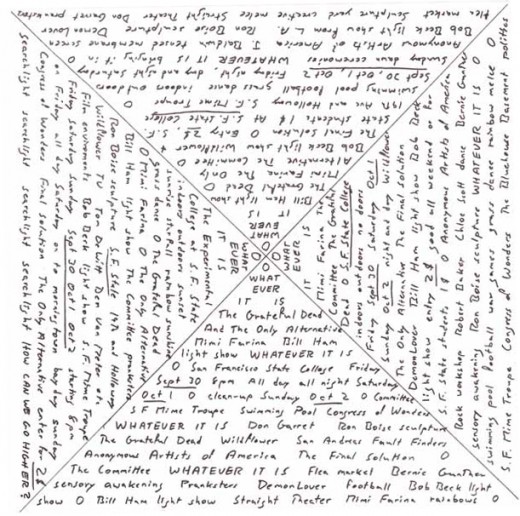 WHAT
EVER
IT IS
Bill Ham light
The Grateful Dead O
Mimi Farina The Only
Alternative The Committee
Bob Beck light show Wildflower
The Final Solution O Entry 2$
students 1$ At S.F. State College
19th Ave and Holloway S.F. Mime Troupe
swimming pool football grass dance indoors outdoors
Sept 30, Oct 1, Oct 2 Friday night, day and night Saturday
Sunday dance ceremonies WHATEVER IT IS bringing it in O
Anonymous Artists of America J. Baldwin tensed membrane screen
Bob Beck light show from L.A. Ron Boise sculpture DemonLover
flea market sculpture yard creative melee Straight Theater Don Garret pranksters
WHAT
EVER
IT IS
The Experimental
College at S.F. State
indoors outdoors concert
sunrise rainbow sunshine
grass dance O The Grateful Dead
O Mimi Farina O The Only Alternative
Bill Ham light show The Committee pranksters
Ron Boise sculpture S.F. State 19th and Holloway
Wildflower TV Tom DeWitt Ben Van Meter etc
Film environments Bob Beck light show S.F. Mime Troupe
Friday Saturday Sunday Sept 30 Oct 1 Oct 2 starting 8pm
on Friday all day Saturday on to morningtown bay day sunday
Congress of Wonders Final Solution The Only Alternative enter for 2$
searchlight searchlight searchlight searchlight HOW CAN WE GO HIGHER?
WHAT
EVER
IT IS
Mimi Farina The
Committee The Grateful
Dead O S.F. State College
indoors outdoors no doors
Friday Sept 30 Saturday Oct 1
Sunday Oct 2 night and day Wildflower
The Only Alternative The Final Solution
DemonLover Bill Ham light show Bob Beck
light show entry 2$ good all weekend or for
S.F. State students 1$ O Anonymous Artists of America
Rock workshop Robert Baker Chloe Scott dance Bernie Gunther
sensory awakening Ron Boise sculpture WHATEVER IT IS O
swimming pool football war games grass dance rainbow melee O
S.F. Mime Troupe Congress of Wonders The Bluehouse Basement politics
WHAT
EVER
IT IS
The Grateful Dead
And The Only Alternative
Mimi Farina Bill Ham
light show WHATEVER IT IS
O San Francisco State College Friday
Sept 30 8pm All day all night Saturday
Oct 1 O clean-up Sunday Oct 2 O Committee
SF Mime Troupe Swimming Pool Congress of Wonders
WHATEVER IT IS Don Garret Ron Boise sculpture
The Grateful Dead Wildflower San Andreas Fault Finders
Anonymous Artists of America The Final Solution O
The Committee WHATEVER IT IS Flea market Bernie Gunther
sensory awakening Pranksters DemonLover football Bob Beck light
show O Bill Ham light show Straight Theater Mimi Farina rainbows O